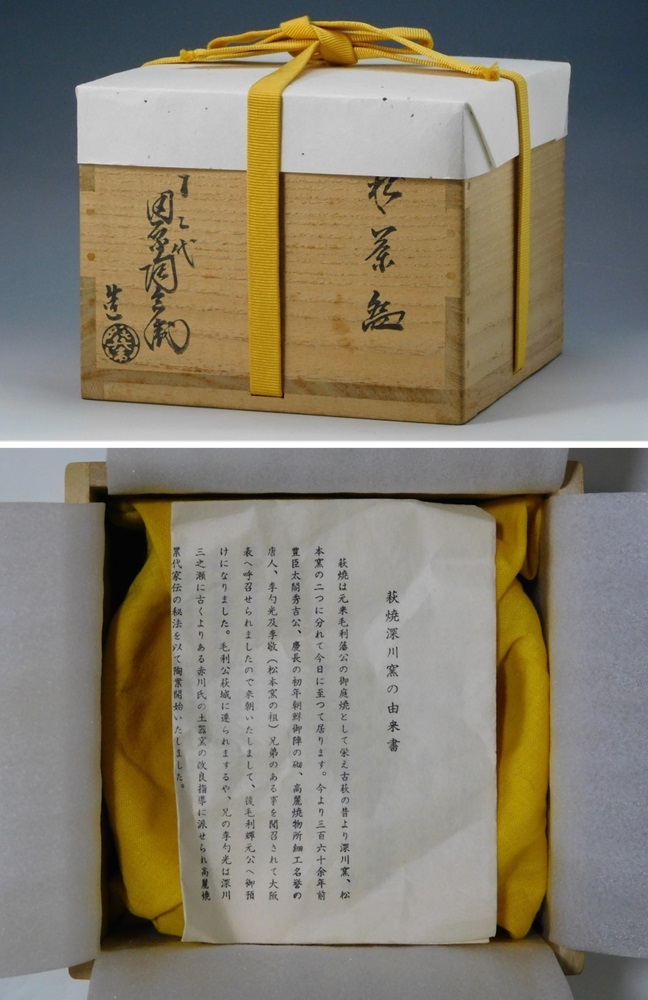 萩茶盌
十二代
田原陶兵衛
造
萩燒深川窯の由来書
萩燒は元来毛利藩公の御庭燒として栄え古萩の昔より深川窯、松
本窯の二つに分れて今日に至つて居ります。今より三百六十余年前
豊臣太閤秀吉公、慶長の初年朝鮮御陣の砌、高麗燒物所細工名誉の
唐人、李勺光及李敬（松本窯の祖）兄弟のある事を聞召されて大阪
表へ呼召せられましたので来朝いたしまして、後毛利輝元公へ御預
けになりました。毛利公萩城に遷られまするや、兄の李勺光は深川
三之瀬に古くよりある赤川氏の土器窯の改良指導に派せられ高麗燒
累代家伝の秘法を以て陶業開始いたしました。